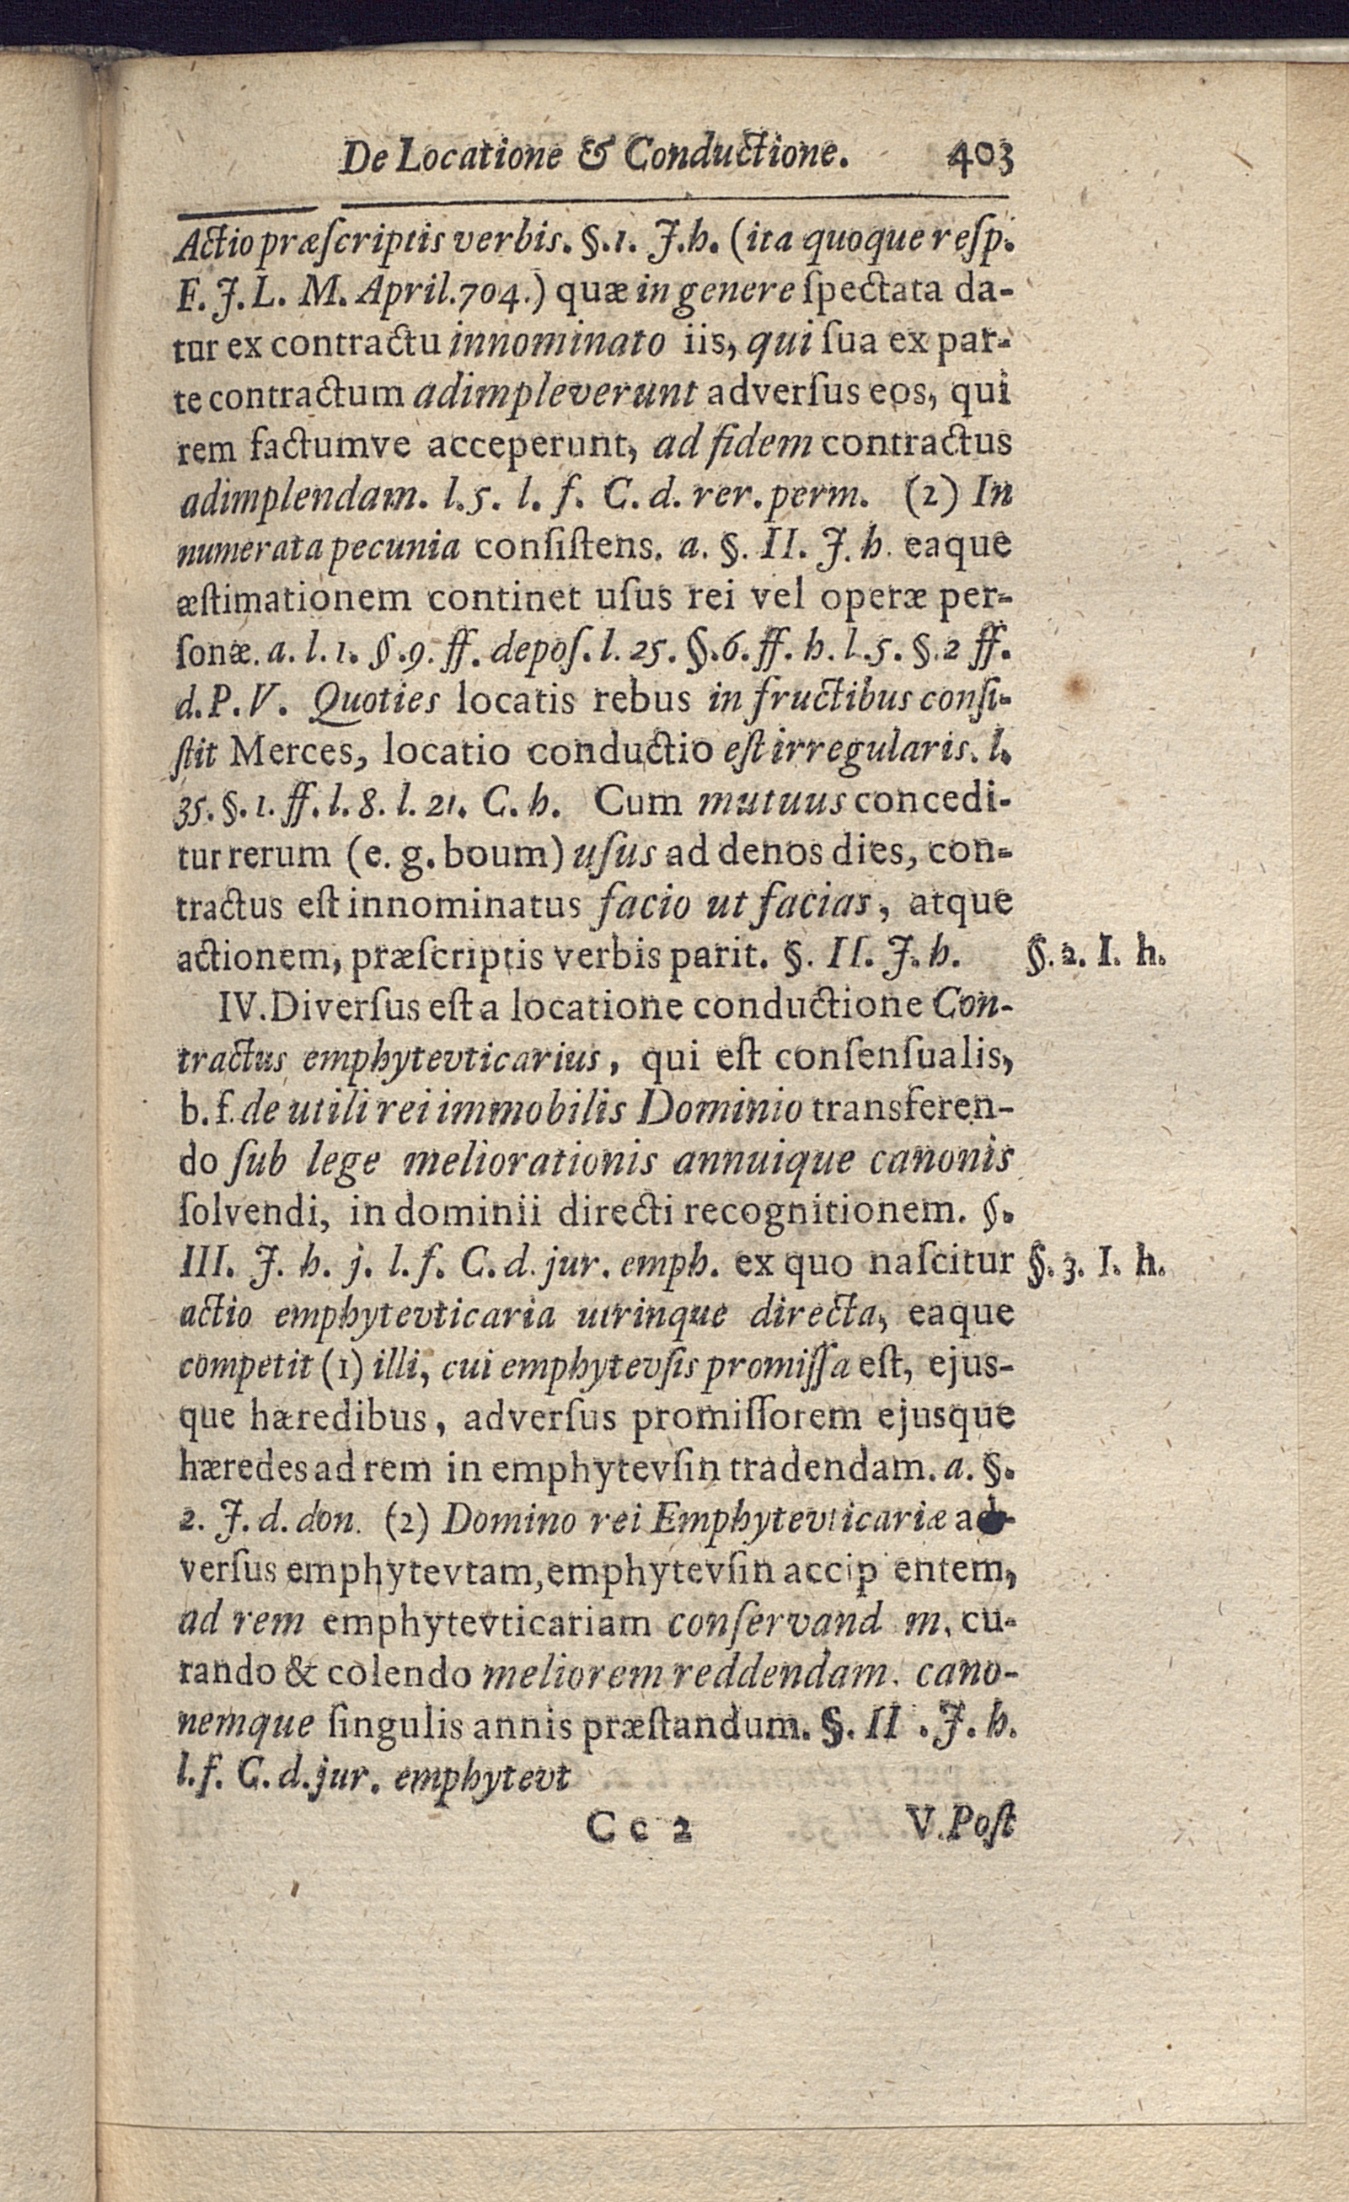 De Locatione & Conductione. 403
Actio præſcriptis verbis. §.1. J.h. (ita quoque reſp.
F.J.L. M. April.704.) quæ in genere ſpectata da-
tur ex contractu innominato iis, qui ſua ex par-
te contractum adimpleverunt adverſus eos, qui
rem factumve acceperunt, ad fidem contractus
adimplendam. l.5. l. f. C. d. rer. perm. (2) In
numerata pecunia conſiſtens. a. §. II. J. h. eaque
æſtimationem continet uſus rei vel operæ per-
ſonæ. a. l. 1. §.9. ff. depoſ. l. 25. §.6. ff. h. l.5. §.2 ff.
d. P. V. Quoties locatis rebus in fructibus conſi-
ſtit Merces, locatio conductio eſt irregularis. l.
35. §. 1. ff. l. 8. l. 21. C. h. Cum mutuus concedi-
tur rerum (e. g. boum) uſus ad denos dies, con-
tractus eſt innominatus facio ut facias, atque
actionem, præſcriptis verbis parit. §. II. J. h. §. 2. I. h.
IV. Diverſus eſt a locatione conductione Con-
tractus emphytevticarius, qui eſt conſenſualis,
b. f. de utili rei immobilis Dominio transferen-
do ſub lege meliorationis annuique canonis
ſolvendi, in dominii directi recognitionem. §.
III. J. h. j. l. f. C. d. jur. emph. ex quo naſcitur §. 3. I. h.
actio emphytevticaria utrinque directa, eaque
competit (1) illi, cui emphytevſis promiſſa eſt, ejus-
que hæredibus, adverſus promiſſorem ejusque
hæredes ad rem in emphytevſin tradendam. a. §.
2. J. d. don. (2) Domino rei Emphytevticariæ ad-
verſus emphytevtam, emphytevſin accip entem,
ad rem emphytevticariam conſervand m, cu-
rando & colendo meliorem reddendam. cano-
nemque ſingulis annis præſtandum. §. II . J. h.
l. f. C. d. jur. emphytevt
C c 2 V. Poſt